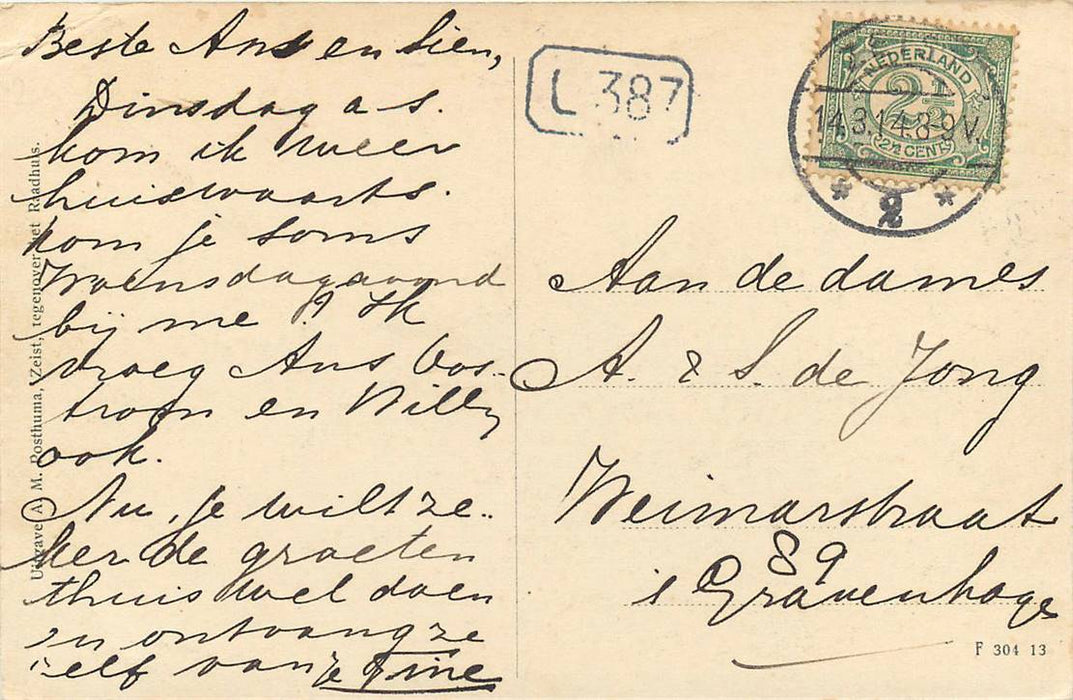 Beste Ans en Sien,
Dinsdag a s.
kom ik weer
huiswaarts.
kom je soms
Woensdagavond
bij me ? Ik
vroeg Ans Oos-
trom en Willy
ook.
Nu, je wilt ze-
ker de groeten
thuis wel doen
en ontvang ze
zelf van je Fine
Uitgave A. M. Posthuma, Zeist, tegenover het Raadhuis.
L 387
NEDERLAND
2½
2½ CENT
14.3.14.8-9V.
* 2 *
Aan de dames
A. & S. de Jong
Weimarstraat
89
s Gravenhage
F 304 13